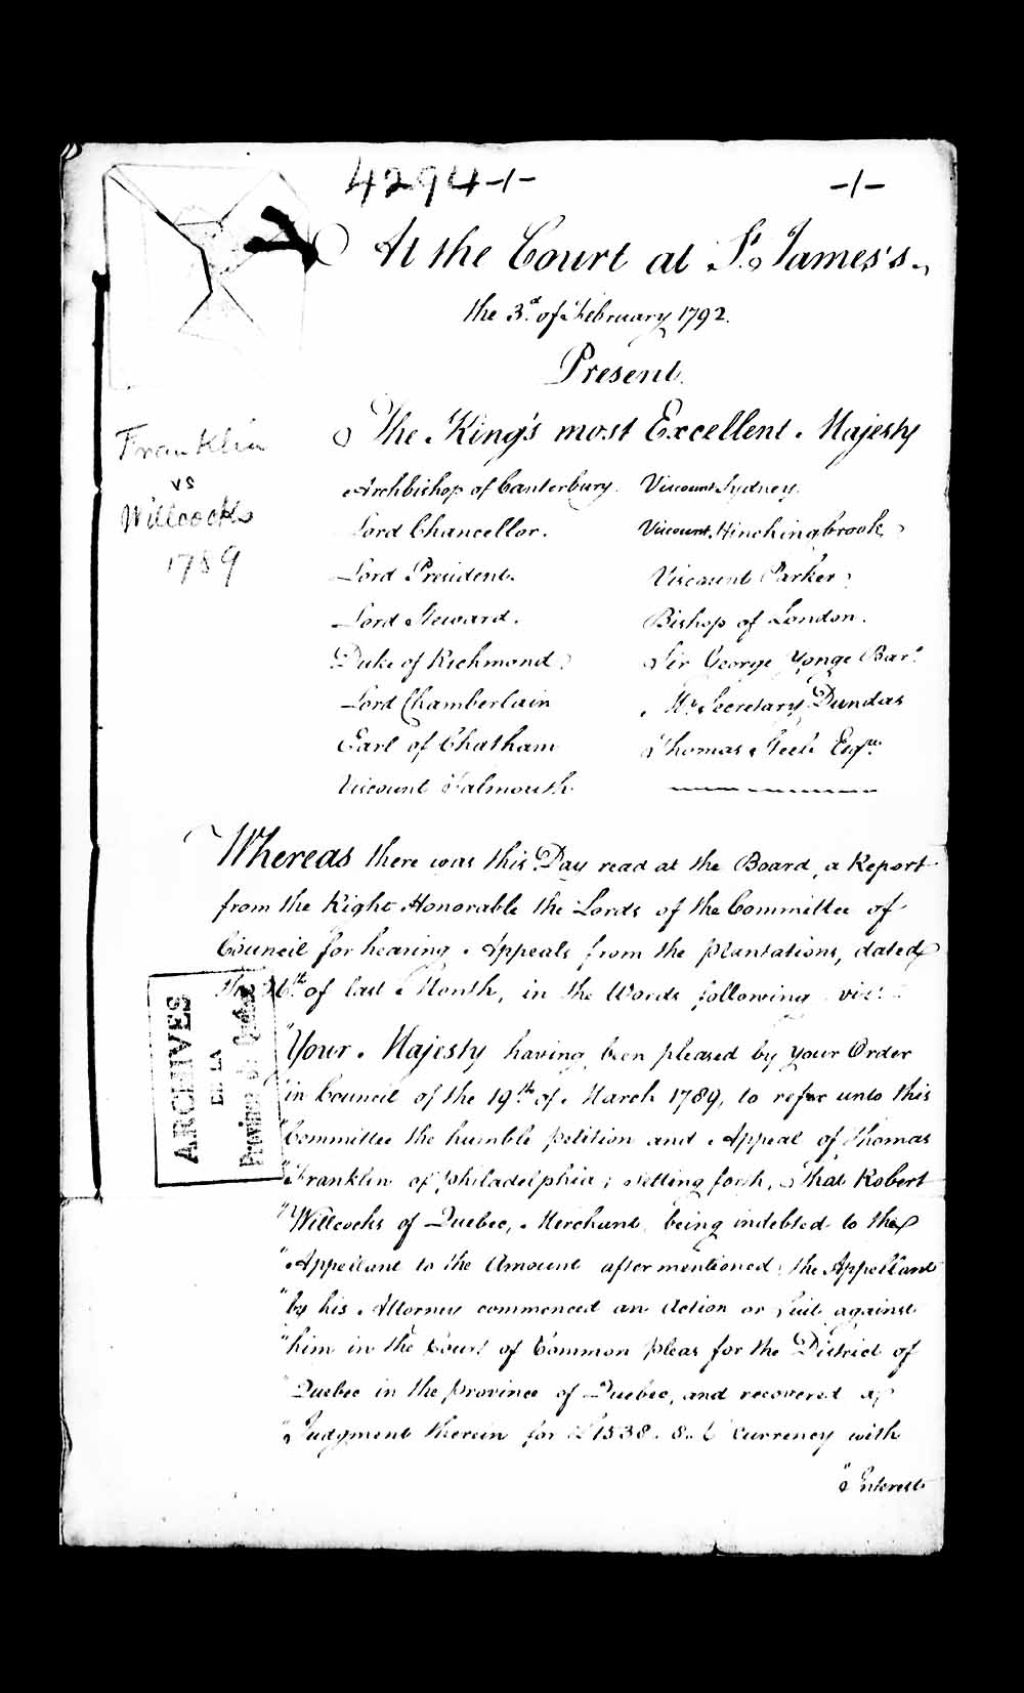 4294-1-
-1-
At the Court at St. James's.
the 3d. of February 1792.
Present
The King's most Excellent Majesty
Archbishop of Canterbury. Viscount Sydney.
Lord Chancellor. Viscount Hinchingbrook
Lord President. Viscount Parker
Lord Steward. Bishop of London.
Duke of Richmond Sir George Yonge Bart.
Lord Chamberlain Mr. Secretary Dundas
Earl of Chatham Thomas Steele Esqre.
Viscount Falmouth
Franklin
vs
Willcocks
1789
Whereas there was this Day read at the Board, a Report
from the Right Honorable the Lords of the Committee of
Council for hearing Appeals from the plantations, dated
the 26th. of last Month, in the Words following viz:
"Your Majesty having been pleased by Your Order
"in Council of the 19th. of March 1789, to refer unto this
"Committee the humble petition and Appeal of Thomas
"Franklin of philadelphia; setting forth, That Robert
"Willcocks of Quebec, Merchant, being indebted to the
"Appellant to the Amount aftermentioned, the Appellant
"by his Attorney commenced an Action or Suit against
"him in the Court of Common pleas for the District of
"Quebec in the province of Quebec, and recovered a
"Judgment therein for £1538. 8. currency with
"Interest
ARCHIVES
DE LA
Province de Québec